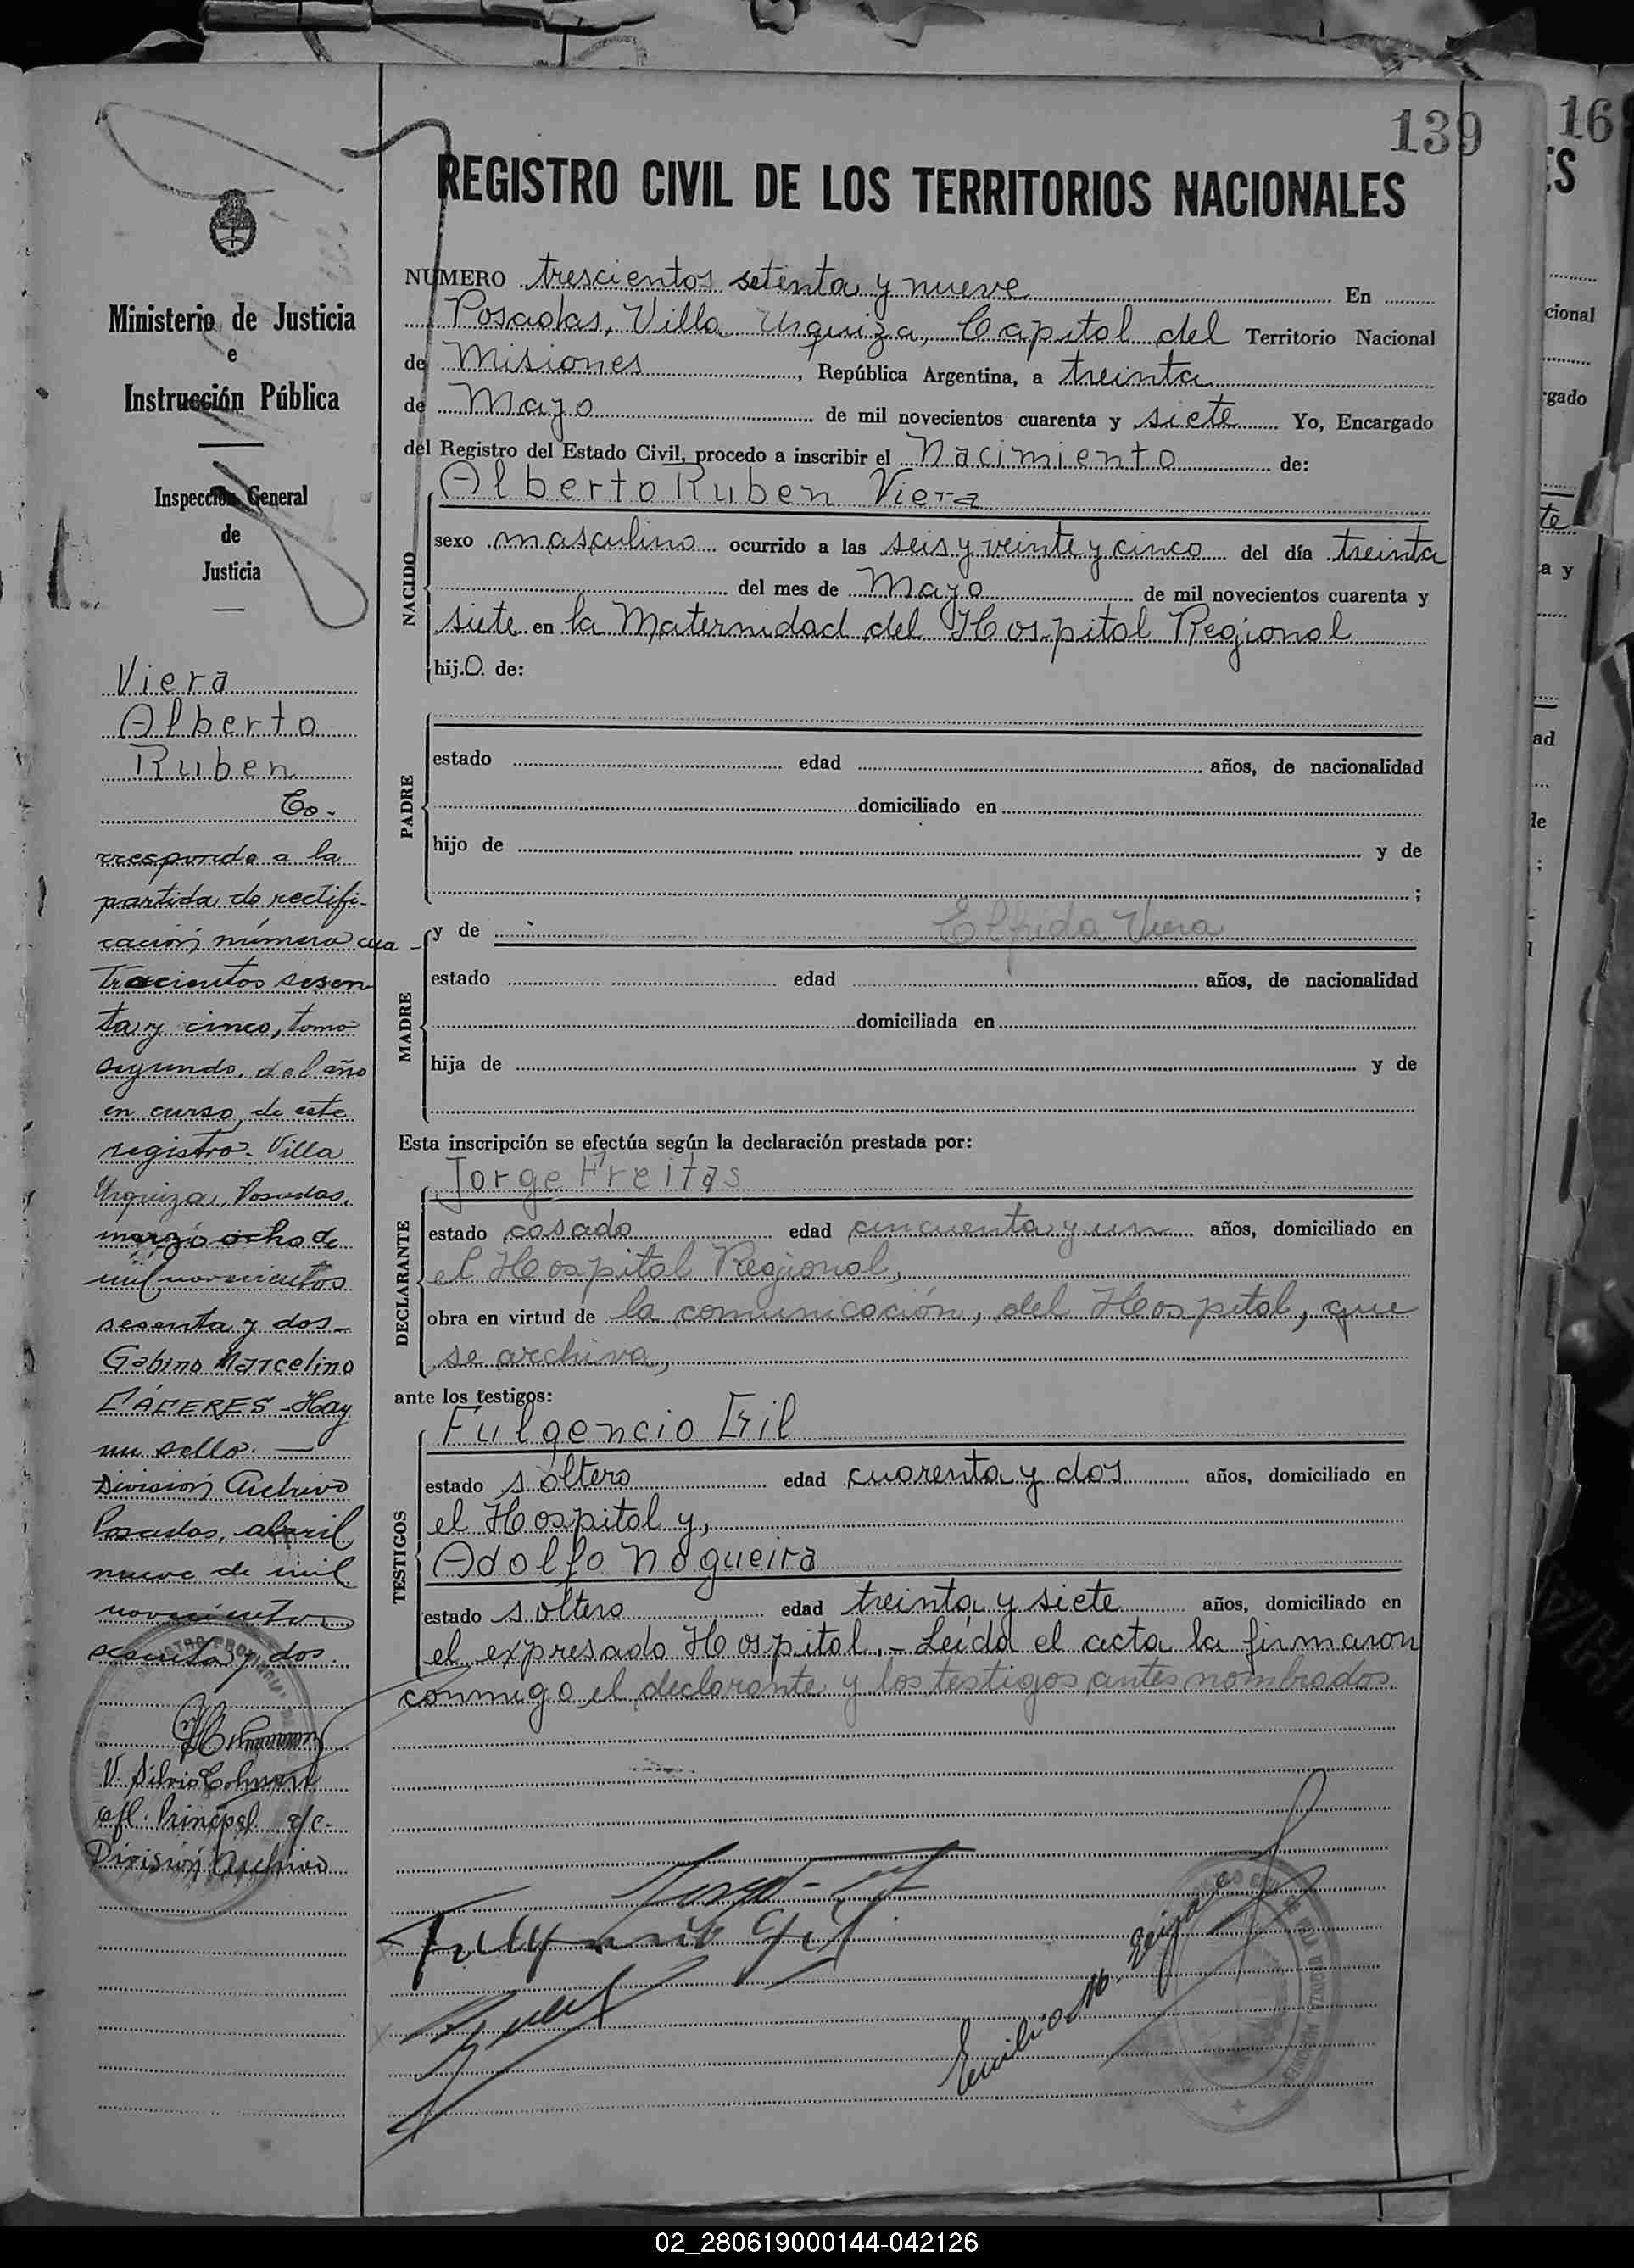 139
16
REGISTRO CIVIL DE LOS TERRITORIOS NACIONALES
Ministerio de Justicia
e
Instrucción Pública
Inspección General
de
Justicia
Viera
Alberto
Ruben
Co-
rresponde a la
partida de rectifi-
cación número cua
trocientos sesen
ta y cinco, tomo
segundo, del año
en curso, de este
registro. Villa
Urquiza, Posadas,
marzo ocho de
mil novecientos
sesenta y dos-
Gabino Marcelino
CÁCERES - Hay
un sello. —
División Archivo
Posadas, abril
nueve de mil
novecientos
sesenta y dos.
V. Silvio
ofl. Principal a/c.
División Archivo
NUMERO trescientos setenta y nueve En
Posadas, Villa Urquiza, Capital del Territorio Nacional
de Misiones, República Argentina, a treinta
de Mayo de mil novecientos cuarenta y siete Yo, Encargado
del Registro del Estado Civil, procedo a inscribir el Nacimiento de:
Alberto Ruben Viera
NACIDO
sexo masculino ocurrido a las seis y veinte y cinco del día treinta
del mes de Mayo de mil novecientos cuarenta y
siete en la Maternidad del Hospital Regional
hijo de:
PADRE
estado edad años, de nacionalidad
domiciliado en
hijo de y de
;
MADRE
y de Elfrida Viera
estado edad años, de nacionalidad
domiciliada en
hija de y de
Esta inscripción se efectúa según la declaración prestada por:
Jorge Freitas
DECLARANTE
estado casado edad cincuenta y un años, domiciliado en
el Hospital Regional,
obra en virtud de la comunicación, del Hospital, que
se archiva,
ante los testigos:
Fulgencio Gil
TESTIGOS
estado soltero edad cuarenta y dos años, domiciliado en
el Hospital y,
Adolfo Nogueira
estado soltero edad treinta y siete años, domiciliado en
el expresado Hospital.- Leida el acta la firmaron
conmigo el declarante y los testigos antes nombrados.
Fulgencio Gil
Emilio M.
02_280619000144-042126